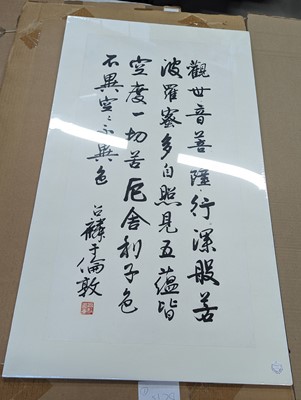 觀世音菩薩行深般若
波羅蜜多自照見五蘊皆
空度一切苦厄舍利子色
不異空〻不異色
麟于倫敦